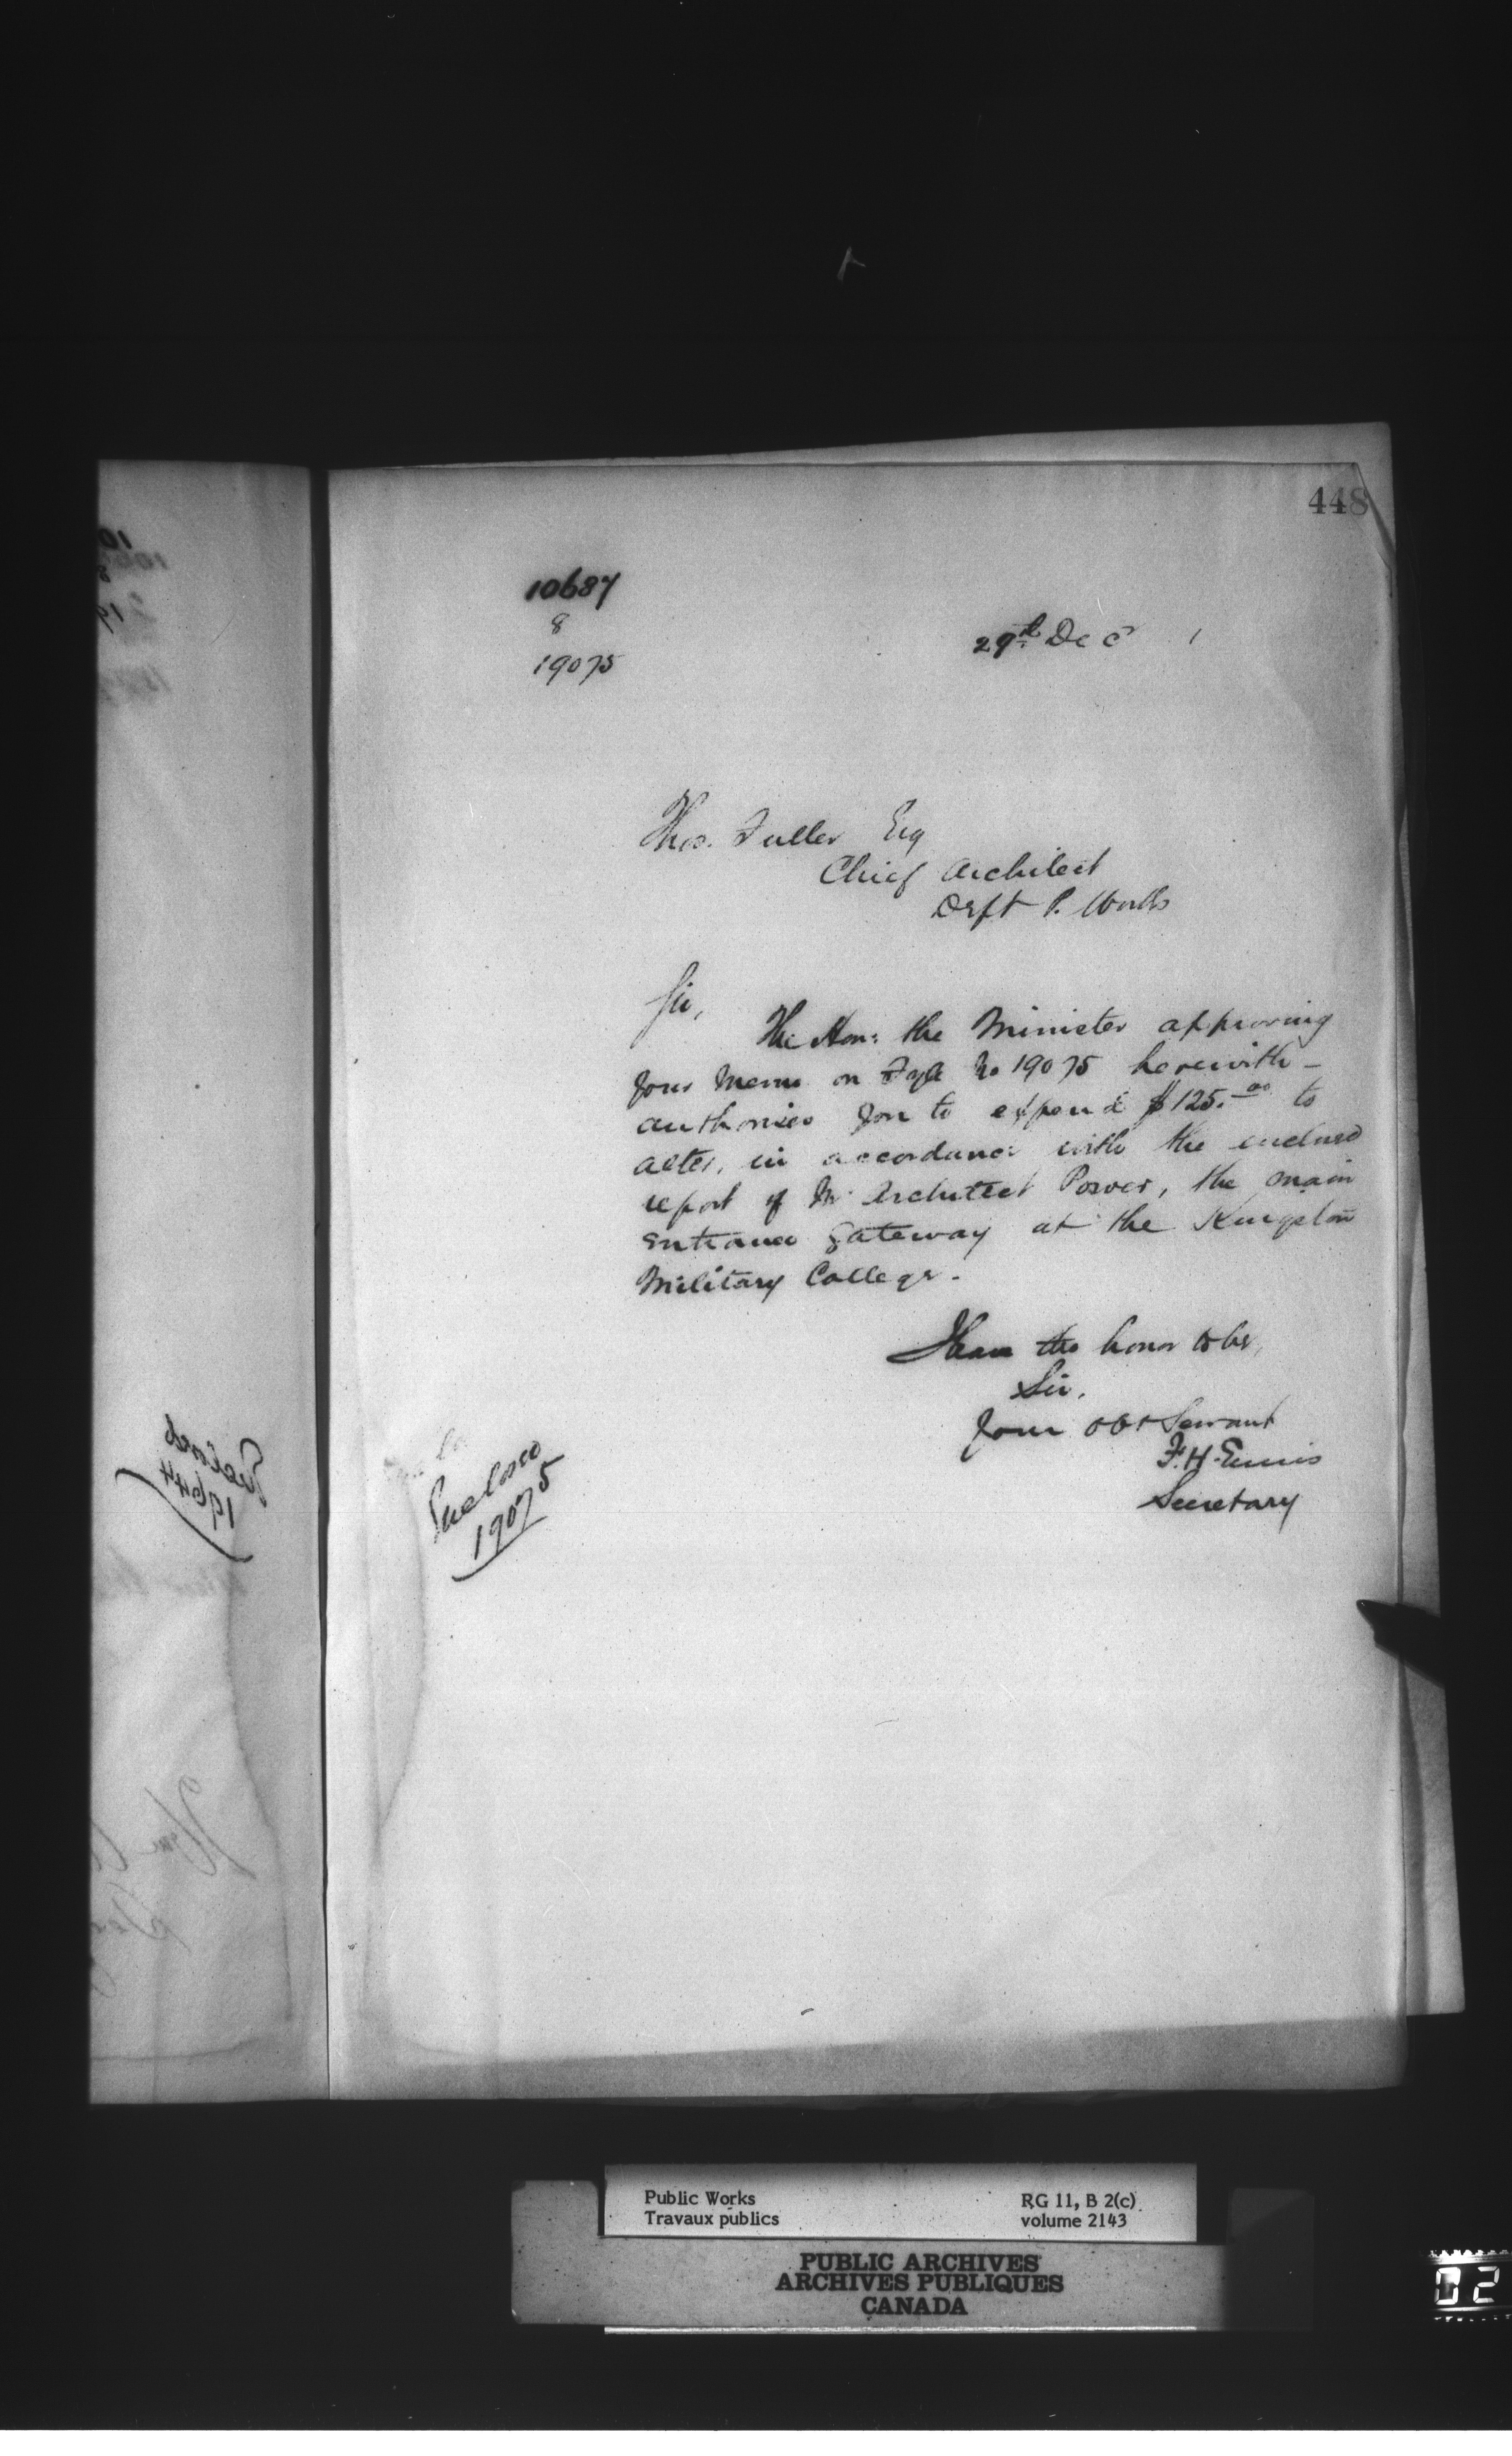 448
10687
8
19075
29th Decr 1
Thos. Fuller Esq
Chief Architect
Dept P. Works
Sir,
The Hon: the Minister approving
your memo on Fyle No 19075 herewith -
authorises you to expend $125.00 to
alter, in accordance with the enclosed
report of Mr Architect Power, the main
entrance gateway at the Kingston
Military College.
I have the honor to be,
Sir,
Your obt Servant
F. H. Ennis
Secretary
Enclosed
19075
Enclosed
19644
Public Works
Travaux publics
RG 11, B 2(c)
volume 2143
PUBLIC ARCHIVES
ARCHIVES PUBLIQUES
CANADA
02